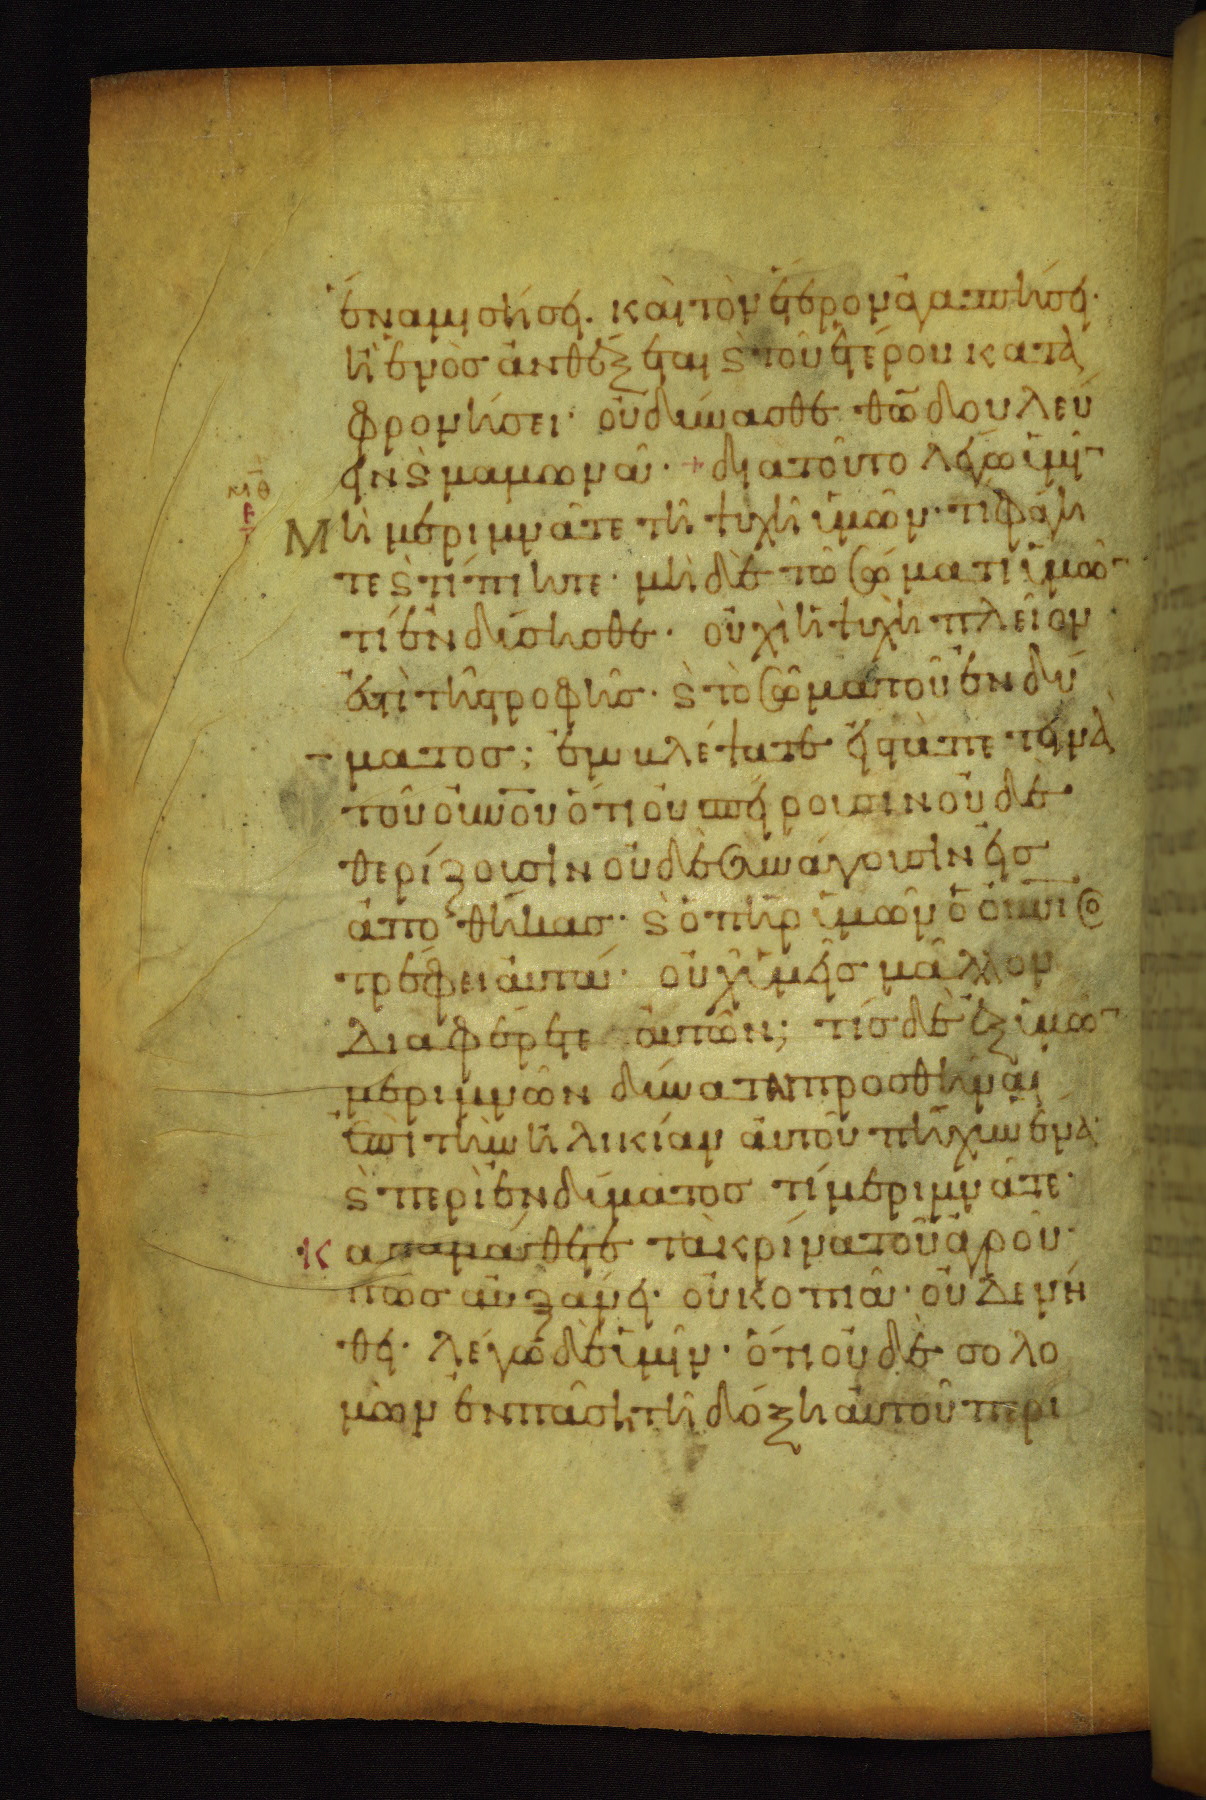 ἕνα μισήσει. καὶ τὸν ἕτερον ἀγαπήσει·
ἢ ἑνὸς ἀνθέξεται ϗ τοῦ ἑτέρου κατα
φρονήσει· οὐ δύνασθε θω̄ δουλεύ
ειν ϗ μαμωνᾶ· + διατοῦτο λέγω ὑμῖ
μθ̄
β
Μὴ μεριμνᾶτε τῆ ψυχῆ ὑμῶν· τί φάγη
τε ϗ τί πίητε· μὴ δὲ τῶ σώματι ὑμῶ
τί ἐνδύσησθε· οὐχὶ ἡ ψυχὴ πλεῖον
ἐστὶ τῆς τροφῆς· ϗ τὸ σῶμα τοῦ ἐνδύ
ματος; ἐμβλέψατε εἰς τὰ πετεινὰ
τοῦ οὐνου ὅτι οὐ σπείρουσιν οὐδὲ
θερίζουσιν οὐδὲ συνάγουσιν εἰς
ἀποθήκας· ϗ ὁ πηρ ὑμῶν ὁ οὐνιος
τρέφει αὐτά· οὐχ ὑμεῖς μᾶλλον
διαφέρετε αὐτῶν; τίς δὲ ἐξ ὑμῶ
μεριμνῶν δύναται προσθῆναι
ἐπὶ τὴν ἡλικίαν αὐτοῦ πῆχυν ἕνα·
ϗ περὶ ἐνδύματος τί μεριμνᾶτε·
Καταμάθετε τὰ κρίνα τοῦ ἀγροῦ·
πῶς αὐξάνει· οὐ κοπιᾶ· οὐδὲ νή
θει· λέγω δὲ ὑμῖν· ὅτι οὐδὲ σολο
μὼν ἐν πάσῃ τῆ δόξη αὐτοῦ περι